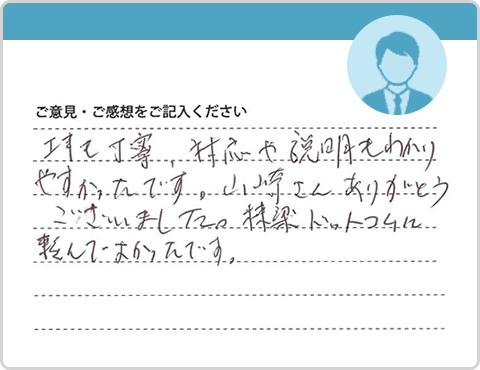 ご意見・ご感想をご記入ください
工事も丁寧、対応や説明もわかり
やすかったです。山崎さんありがとう
ございました。棟梁ドットコムに
頼んでよかったです。